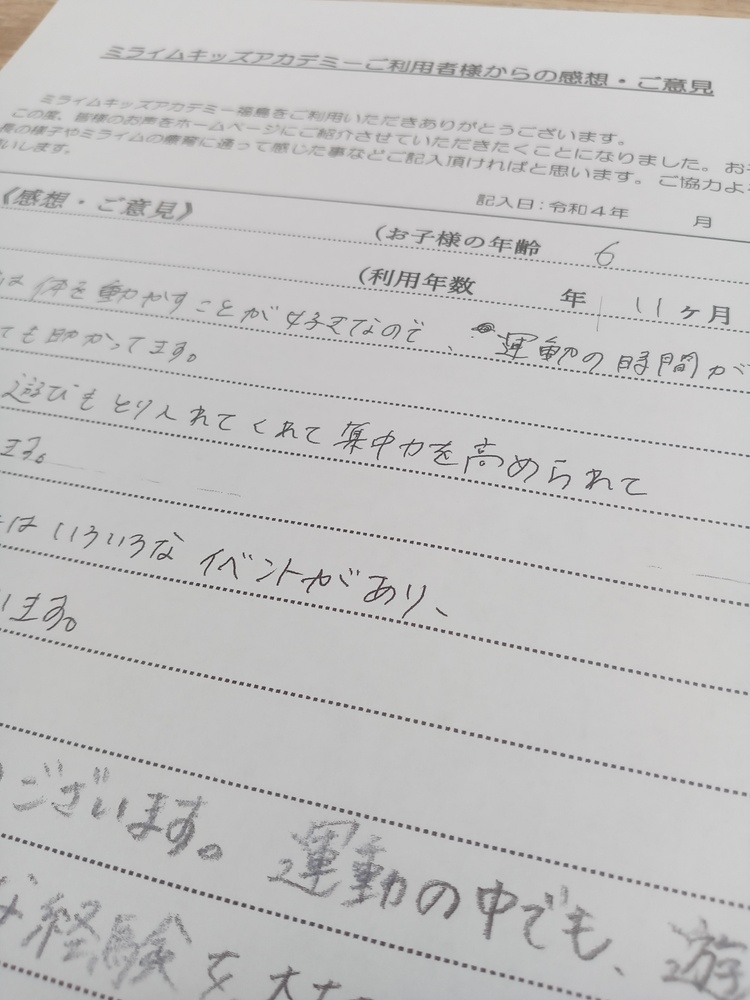 ミライムキッズアカデミーご利用者様からの感想・ご意見
ミライムキッズアカデミー福島をご利用いただきありがとうございます。
この度、皆様のお声をホームページにご紹介させていただきたくことになりました。お子
長の様子やミライムの療育に通って感じた事などご記入頂ければと思います。ご協力よ
いします。
記入日：令和４年 月
《感想・ご意見》
（お子様の年齢 6
（利用年数 年 11ヶ月
は体を動かすことが好きなので、運動の時間が
ても助かってます。
遊びもとり入れてくれて集中力を高められて
ます。
はいろいろなイベントがあり、
います。
ございます。運動の中でも、遊
な経験を